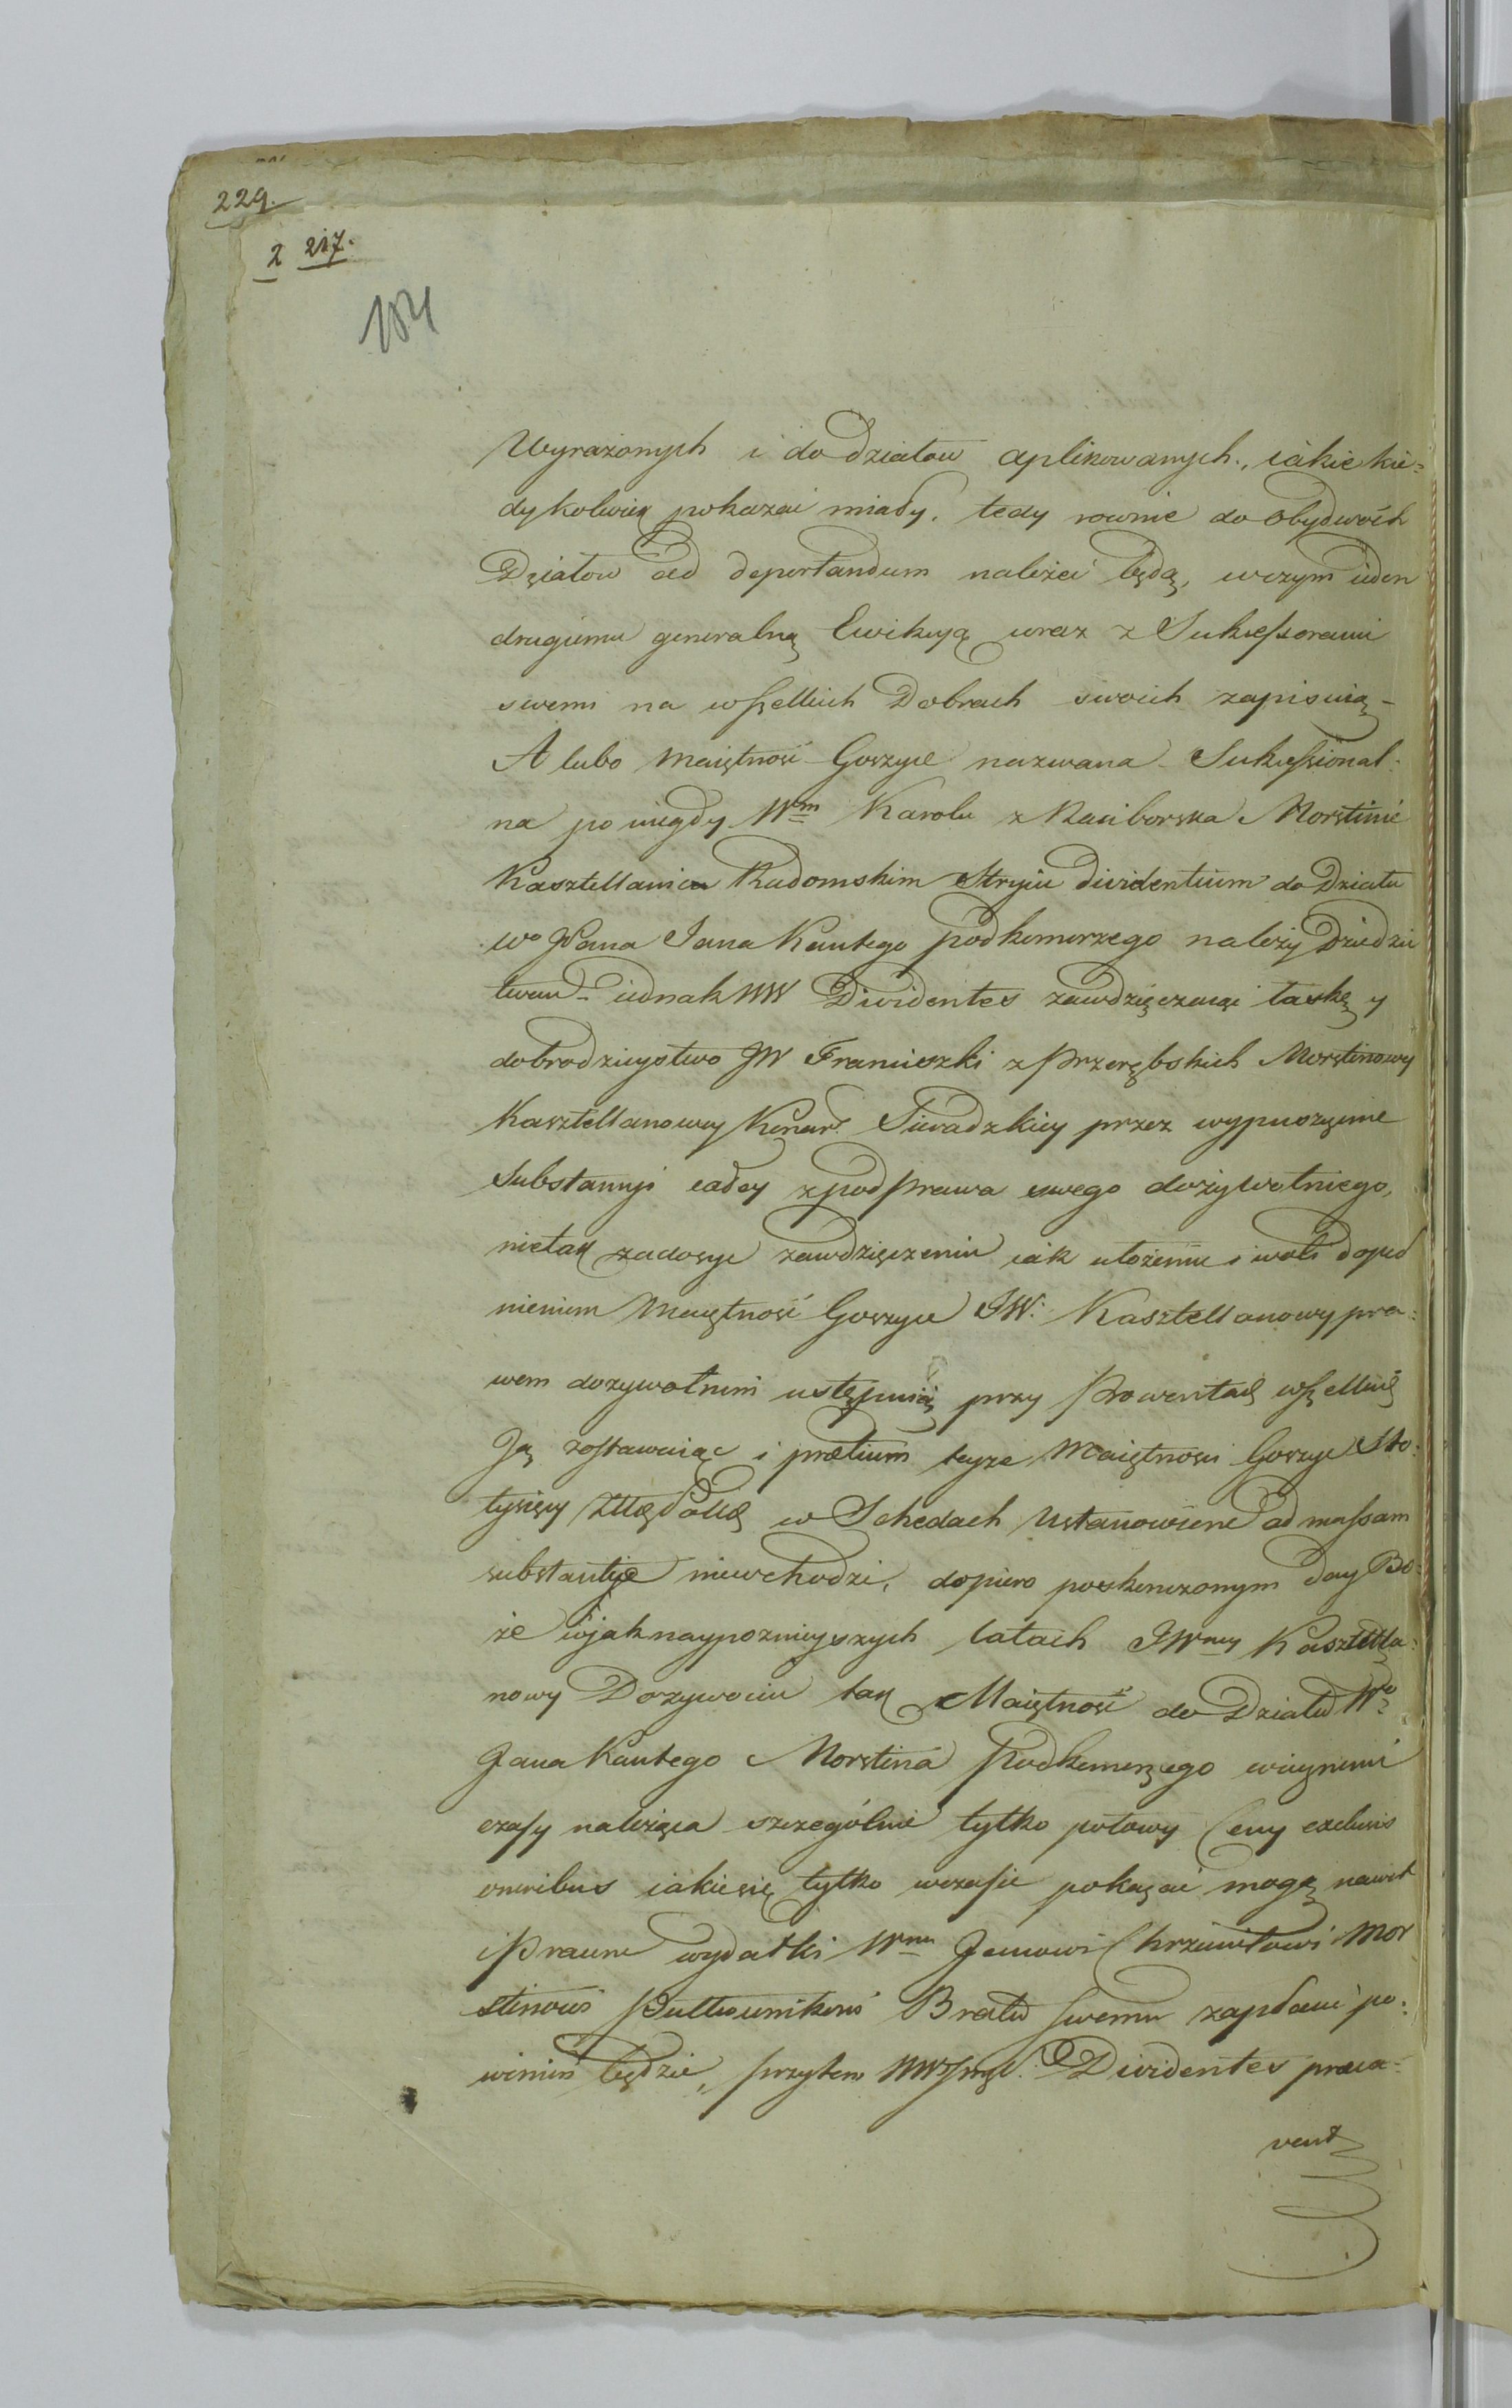 229.
2 217.
184
Wyrażonych i do Działow aplikowanych, iakie kie=
dykolwiek pokazać miały, tedy rownie do obydwoch
Działow ad deportandum należeć będą, wczym ieden
drugiemu generalną Ewikcyą wraz z Sukcessorami
swemi na wszelkich Dobrach swoich zapisuią –
A lubo Maiętność Goszyce nazwana Sukcessional=
na po niegdy Wm Karolu z Raciborska Morstinie
Kasztellanicu Radomskim Stryiu dividentium do Działu
Wo Pana Jana Kantego Podkomorzego należy Dziedzic
twem – iednak WW Dividentes zawdzięczaiąc łaskę y
dobrodzieystwo JW Franciszki z Przerębskich Morstinowy
Kasztellanowy Konar. Sieradzkiey przez wypuszczenie
Substancyi całey zpod Prawa swego dożywotniego,
nietak zadosyc zawdzięczeniu iak ułożeniu i woli dopeł
nieniem Maiętność Goszyce JW. Kasztellanowy pra=
wem dożywotnim ustępuią przy Prowentach wszelkich
Ją zostawuiąc i prætium teyże Maiętności Goszyc Sto=
tysięcy Złł Polł w Schedach Ustanowione ad massam
substantiæ niewchodzi, dopiero poskończonym day Bo=
że wjaknaypoznieyszych latach JWney Kasztella=
nowy Dożywociu tak Maiętność do Działu Wo
Jana Kantego Morstina Podkomorzego wiecznemi
czasy należąca szczególnie tylko połowy Ceny exclusis
oneribus iakiesię tylko wczasie pokazać mogą nawet
i Prawne wydatki Wmu Janowi Chrzcicielowi Mor
stinowi Pułkownikowi Bratu swemu zapłacić po=
winien będzie, przytem WW Dividentes præca=
vent